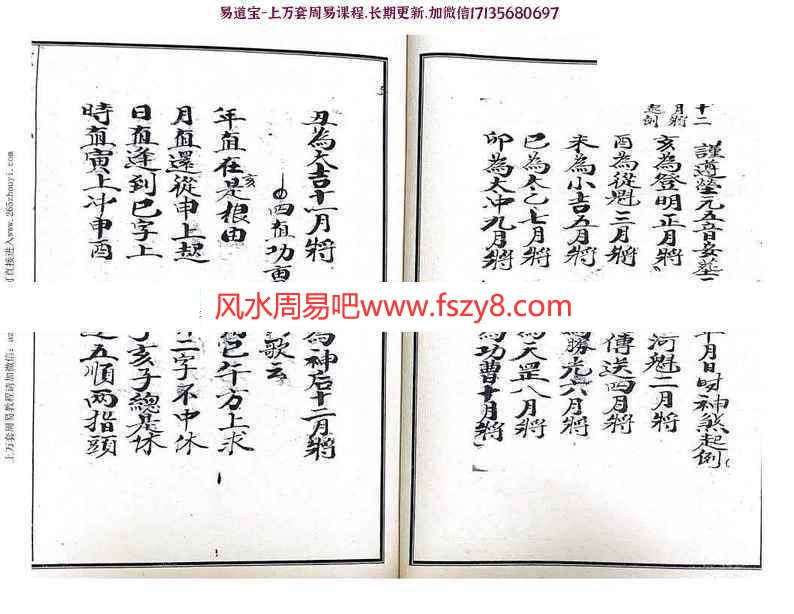 易道宝-上万套周易课程.长期更新.加微信17135680697
十二
月将
起例
謹遵瑩元五音
年月日时神煞起例
亥為登明正月將
河魁二月將
酉為從魁三月將
傳送四月將
未為小吉五月將
勝光六月將
巳為太乙七月將
為天罡八月將
卯為太冲九月將
為功曹十月將
丑為大吉十一月將
為神后十二月將
四直功曹
歌云
年直在亥是根由
巳午方上求
月直還從申上起
二字不中休
日直逢到巳字上
亥子總是休
時直寅上冲申酉
五順两指頭
风水周易吧www.fszy8.com
直接进入www.265zhouyi.com
上万套周易教程请加微信：